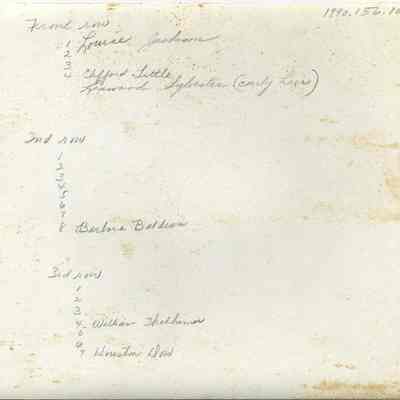 1990.156.10
Front row
1 Louise Jackson
2
3
4 Clifford Little
Linwood Sylvester (curly hair)
2nd row
1
2
3
4
5
6
7
8 Barbara
3rd row
1
2
3
4. William
5
6
7 Houston